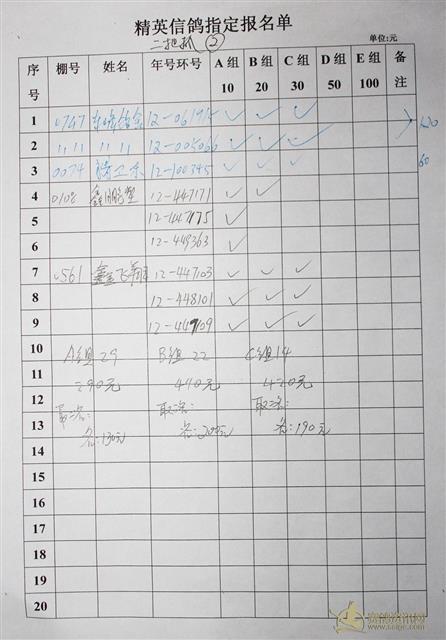 精英信鸽指定报名单
二把抓 ②
单位:元
序号 棚号 姓名 年号环号 A组10 B组20 C组30 D组50 E组100 备注
1 0747 12-061915 ✓ ✓ ✓
2 〃 〃 〃 〃 12-005066 ✓ ✓ ✓ 120
3 0074 12-100345 ✓ ✓ ✓ 60
4 0108 鑫鹏 12-447171 ✓ ✓
5 12-447175 ✓
6 12-449363 ✓
7 0561 鑫飞翔 12-447103 ✓ ✓ ✓
8 12-448101 ✓ ✓ ✓
9 12-447109 ✓ ✓ ✓
10 A组29 B组22 C组14
11 290元 440元 420元
12 取二名: 取二名: 取二名:
13 各:130元 各: 各:190元
14
15
16
17
18
19
20
www.saige.com